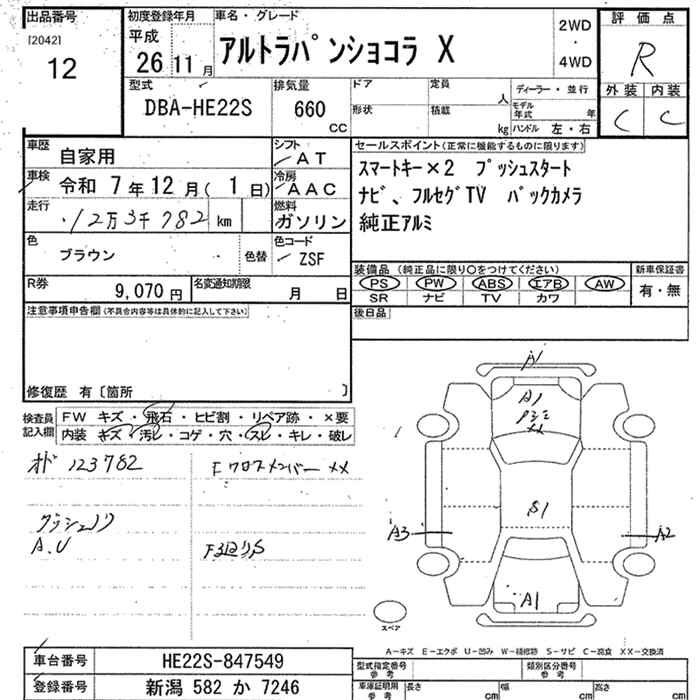 出品番号
[2042]
12
初度登録年月
平成
26 11 月
車名・グレード
アルトラパンショコラ X
2WD
・
4WD
評価点
R
外装 内装
C C
型式
DBA-HE22S
排気量
660
cc
ドア
形状
定員
人
積載
kg
ディーラー・並行
モデル年式 年
ハンドル 左・右
車歴
自家用
シフト
AT
車検 令和 7年12月(1日)
冷房
AAC
走行
12万3千782 km
燃料
ガソリン
色
ブラウン
色替
色コード
ZSF
R券
9,070 円
名変通知期限
月 日
セールスポイント(正常に機能するものに限ります)
スマートキー×2 プッシュスタート
ナビ、フルセグTV バックカメラ
純正アルミ
装備品 (純正品に限り○をつけてください)
PS PW ABS エアB AW
SR ナビ TV カワ
新車保証書
有・無
注意事項申告欄(不具合内容等は具体的に記入して下さい)
後日品
修復歴 有〔箇所 〕
検査員
記入欄
FW キズ・飛石・ヒビ割・リペア跡・×要
内装 キズ・汚レ・コゲ・穴・スレ・キレ・破レ
オド 123782
Fクロスメンバー ××
A.U
A1
A1
××
S1
A3
A2
A1
スペア
A−キズ E−エクボ U−凹み W−補修跡 S−サビ C−腐食 XX−交換済
車台番号 HE22S-847549
登録番号 新潟 582 か 7246
型式指定番号
参考
類別区分番号
参考
車庫証明用
参考
長さ cm
幅 cm
高さ cm